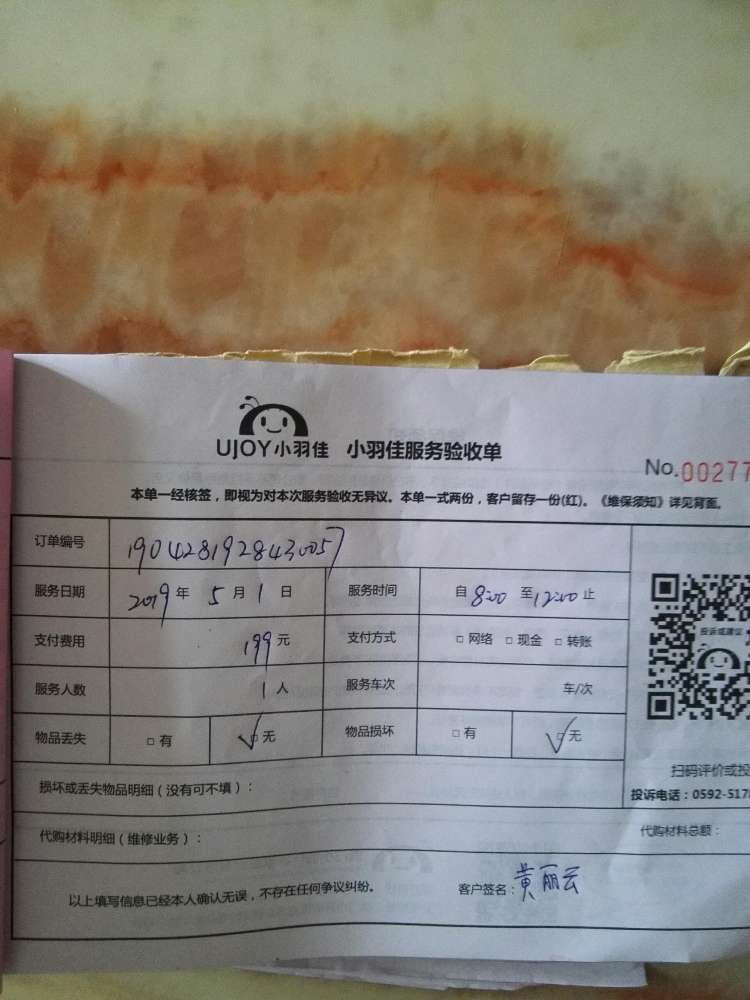 UJOY小羽佳 小羽佳服务验收单
No.00277
本单一经核签，即视为对本次服务验收无异议。本单一式两份，客户留存一份(红)。《维保须知》详见背面。
订单编号 1904281928430057
服务日期 2019年 5月 1日 服务时间 自8:00至12:00止
支付费用 199元 支付方式 □网络 □现金 □转账
服务人数 1人 服务车次 车/次
物品丢失 □有 ☑无 物品损坏 □有 ☑无
投诉或建议
扫码评价或投
损坏或丢失物品明细（没有可不填）：
投诉电话：0592-517
代购材料明细（维修业务）： 代购材料总额：
以上填写信息已经本人确认无误，不存在任何争议纠纷。 客户签名：黄丽云